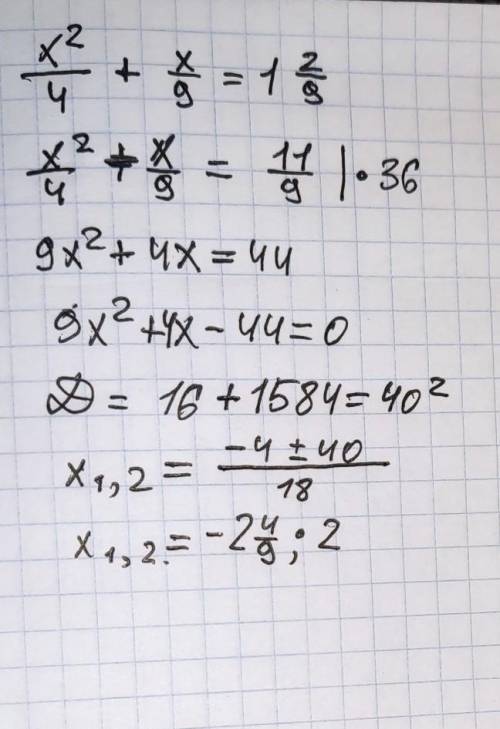 x²/4 + x/9 = 1 2/9
x²/4 + x/9 = 11/9 | • 36
9x² + 4x = 44
9x² + 4x - 44 = 0
D = 16 + 1584 = 40²
x₁,₂ = (-4 ± 40)/18
x₁,₂. = -2 4/9 ; 2